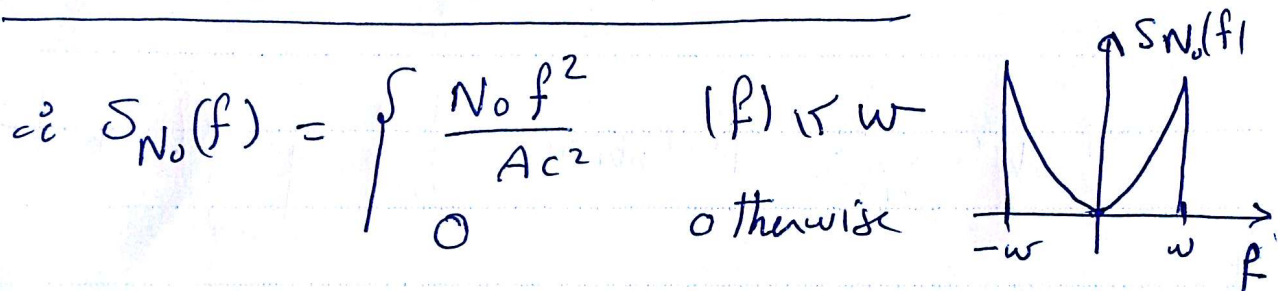 ∴ S_{N_0}(f) = { \frac{N_0 f^2}{A_c^2} |f| ≤ w
0 otherwise
S_{N_0}(f)
-w w f